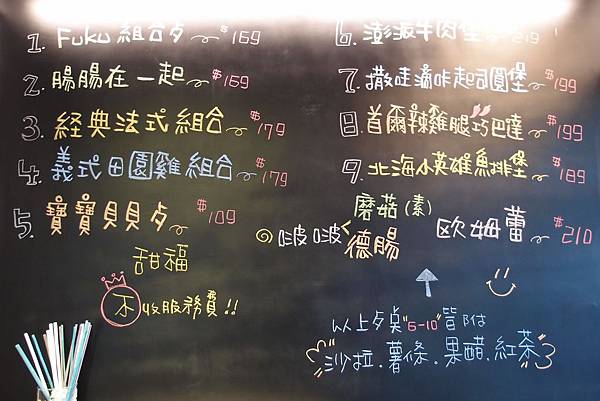 1. Fuku組合歺 $169
2. 腸腸在一起 $169
3. 経典法式組合 $179
4. 義式田園雞組合 $179
5. 寶寶貝貝歺 $109
甜福
不收服務費!!
6. 澎湃牛肉堡 $219
7. 撒哇滴咔起司圓堡 $199
8. 首爾辣雞腿巧巴達 $199
9. 北海小英雄魚排堡 $189
啵啵 磨菇(素) 德腸 欧姆蕾 $210
以上歺桌"6-10"皆附
沙拉.薯條.果醋.紅茶